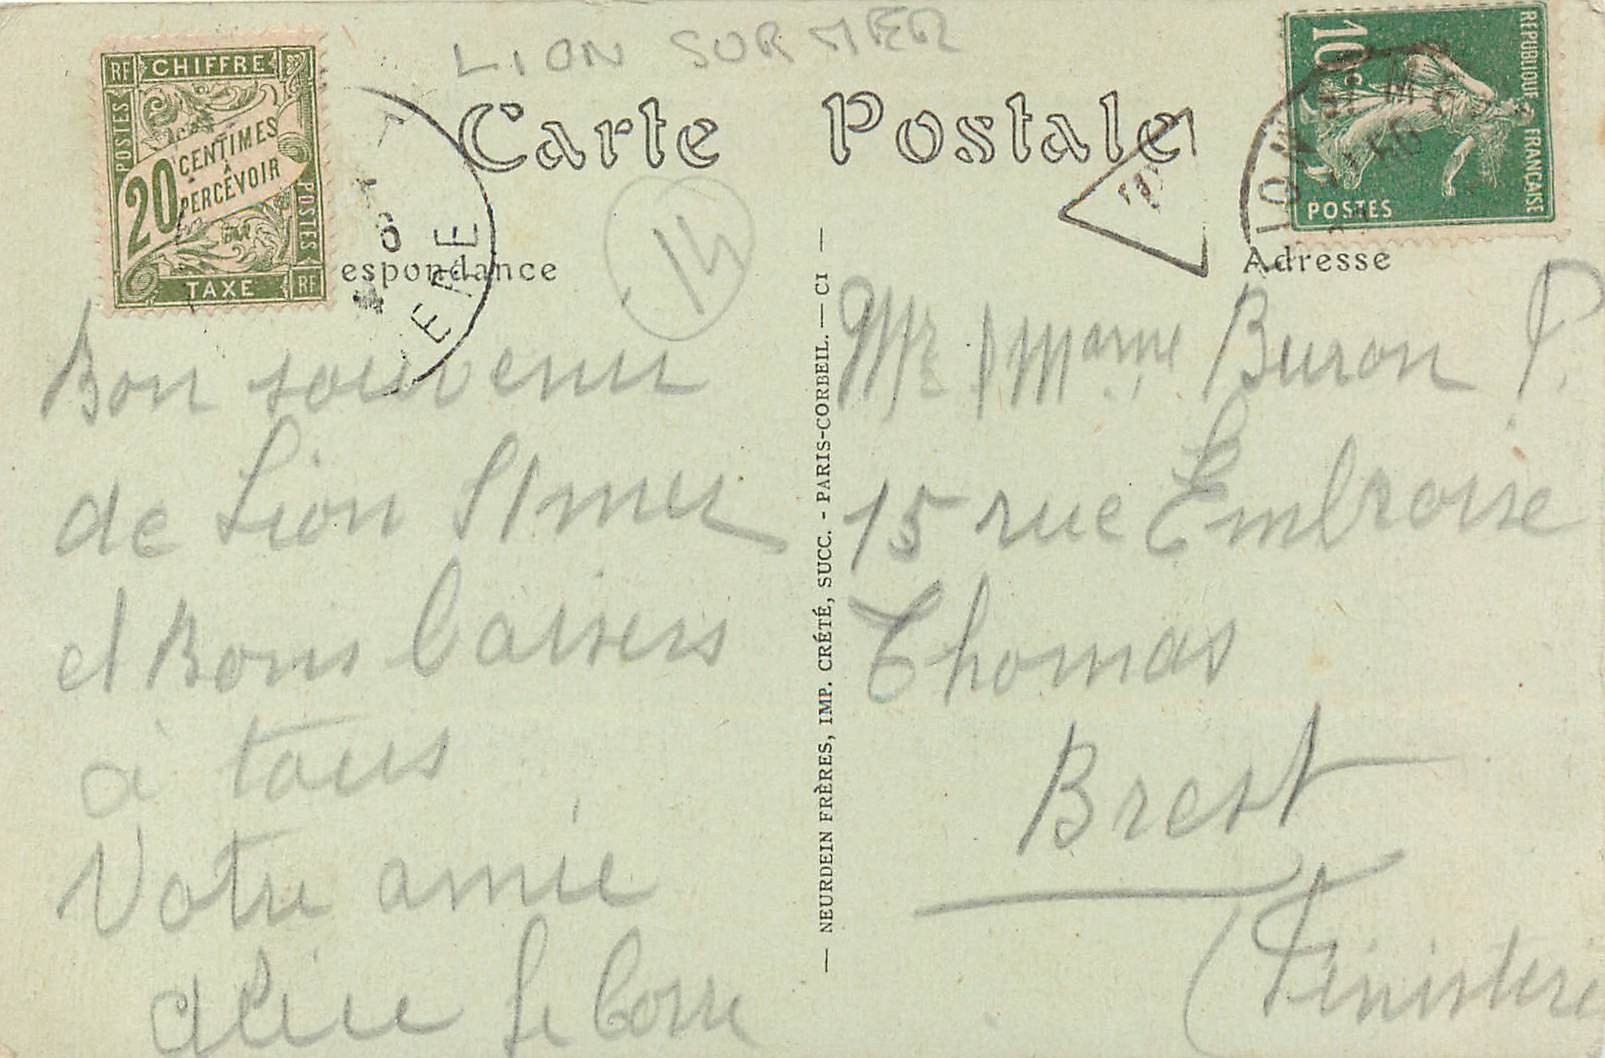 LION SUR MER
RF CHIFFRE
POSTES
20 CENTIMES
À
PERCEVOIR
POSTES
TAXE RF
Carte Postale
10c
REPUBLIQUE FRANÇAISE
POSTES
LION S MER
espondance
Adresse
14
Bon souvenir
de Lion S/mer
et Bons baisers
à tous
Votre amie
Alice Le Corre
— NEURDEIN FRÈRES, IMP. CRÉTÉ, SUCC. - PARIS-CORBEIL. — CI —
Mr Buron P.
15 rue Embroise
Thomas
Brest
(Finistère